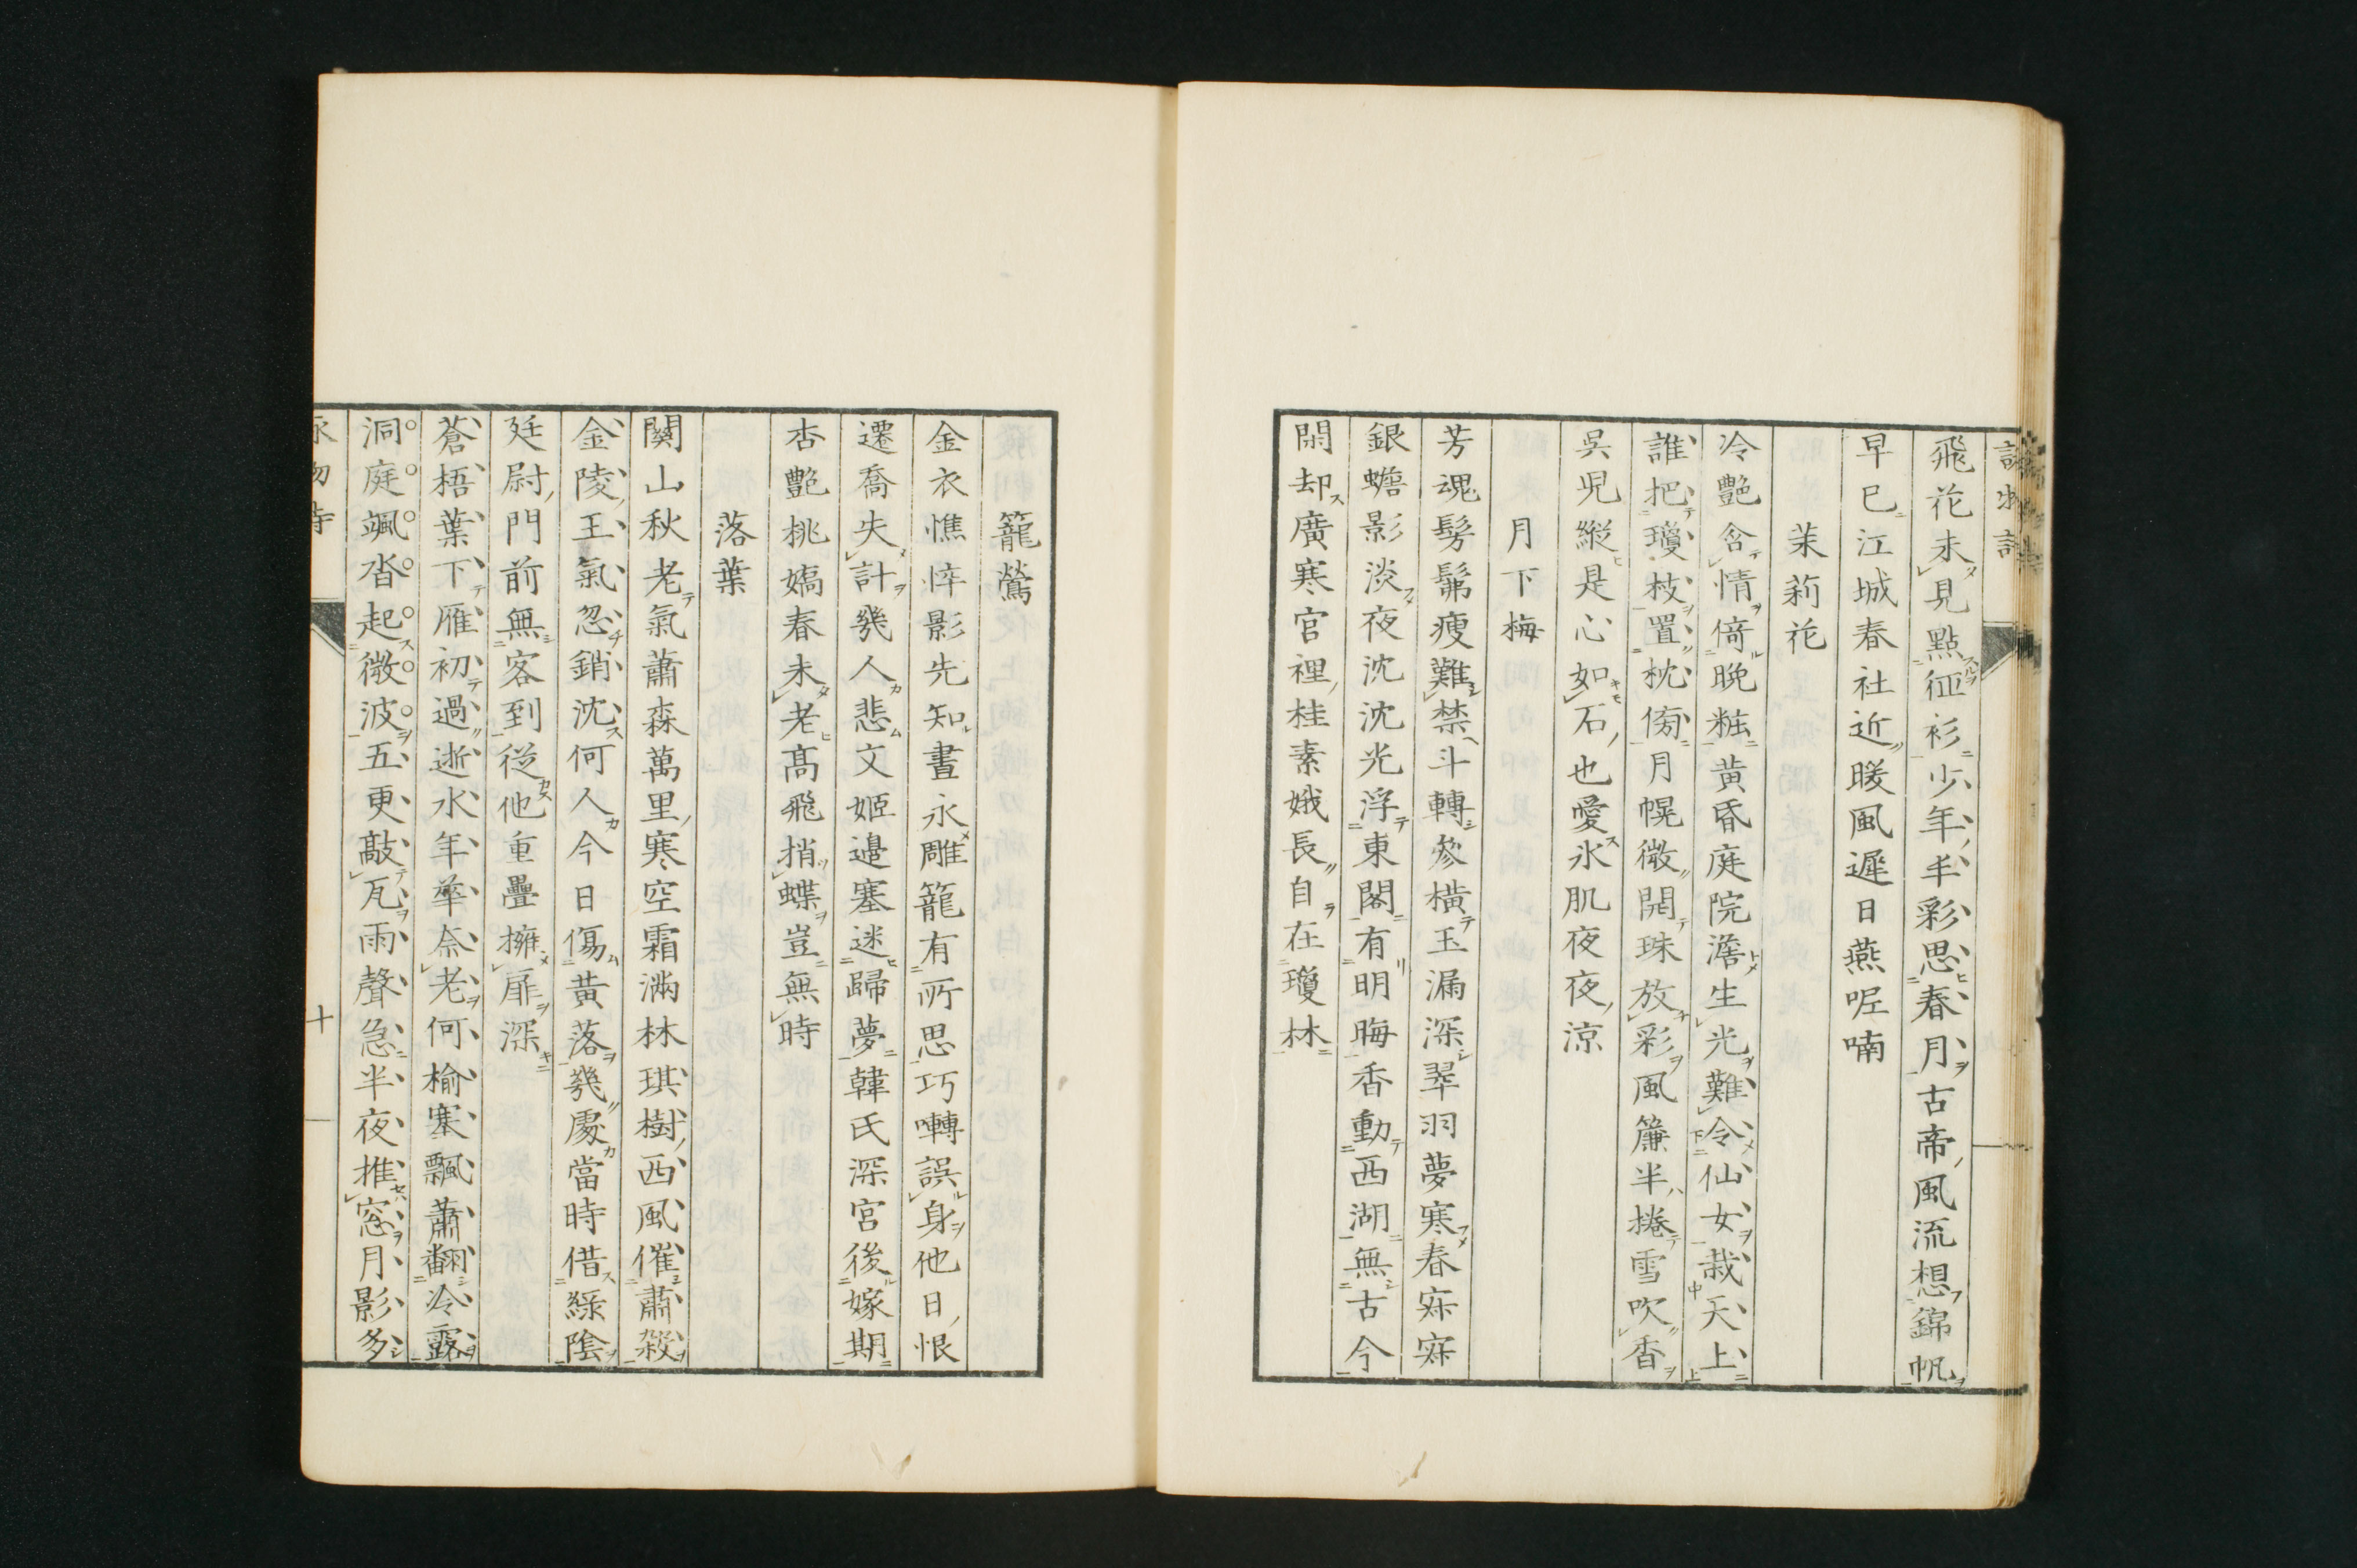 詠物詩
飛花未見點征衫少年半彩思春月古帝風流想錦帆
早已江城春社近暖風遲日燕呢喃
茉莉花
冷艷含情倚晩粧黄昏庭院澹生光難令仙女栽天上
誰把瓊枝置枕傍月幌微開珠放彩風簾半捲雪吹香
吳兒縱是心如石也愛氷肌夜夜涼
月下梅
芳魂髣髴瘦難禁斗轉參橫玉漏深翠羽夢寒春寂寂
銀蟾影淡夜沈沈光浮東閣有明晦香動西湖無古今
閑却廣寒官裡桂素娥長自在瓊林
籠鶯
金衣憔悴影先知晝永雕籠有所思巧囀誤身他日恨
遷喬失計幾人悲文姬邊塞迷歸夢韓氏深宮後嫁期
杏艷桃嬌春未老髙飛捎蝶豈無時
落葉
關山秋老氣蕭森萬里寒空霜滿林琪樹西風催肅殺
金陵王氣忽銷沈何人今日傷黄落幾處當時借綠陰
廷尉門前無客到從他重疊擁扉深
蒼梧葉下雁初過逝水年華奈老何榆塞飄蕭翻冷露
洞庭颯沓起微波五更敲瓦雨聲急半夜推窓月影多
十